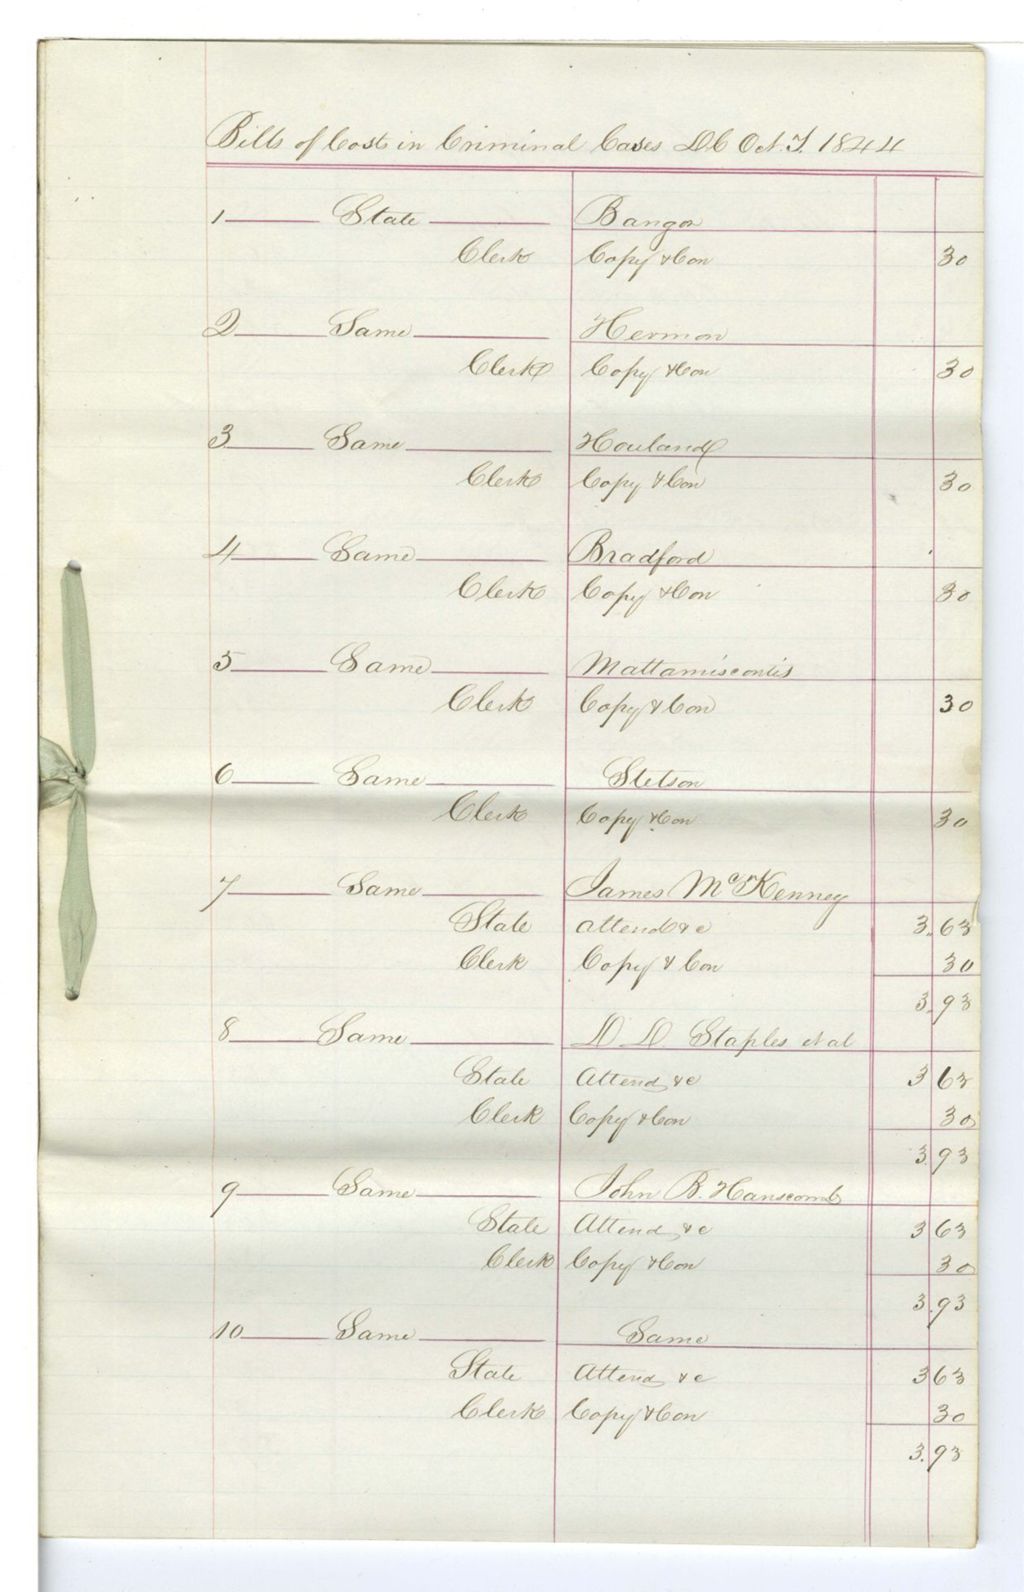 Bills of Cost in Criminal Cases D.C Oct. T. 1844
1 State Bangor
Clerk Copy & Con 30
2 Same Hermon
Clerk Copy & Con 30
3 Same Houland
Clerk Copy & Con 30
4 Same Bradford
Clerk Copy & Con 30
5 Same Mattamiscontis
Clerk Copy & Con 30
6 Same Stetson
Clerk Copy & Con 30
7 Same James McKenney
State attend & c 3.63
Clerk Copy & Con 30
3.93
8 Same D. D. Staples et al
State Attend & c 3 63
Clerk Copy & Con 30
3.93
9 Same John B. Hanscomb
State Attend & c 3 63
Clerk Copy & Con 30
3.93
10 Same Same
State Attend & c 3 63
Clerk Copy & Con 30
3.93